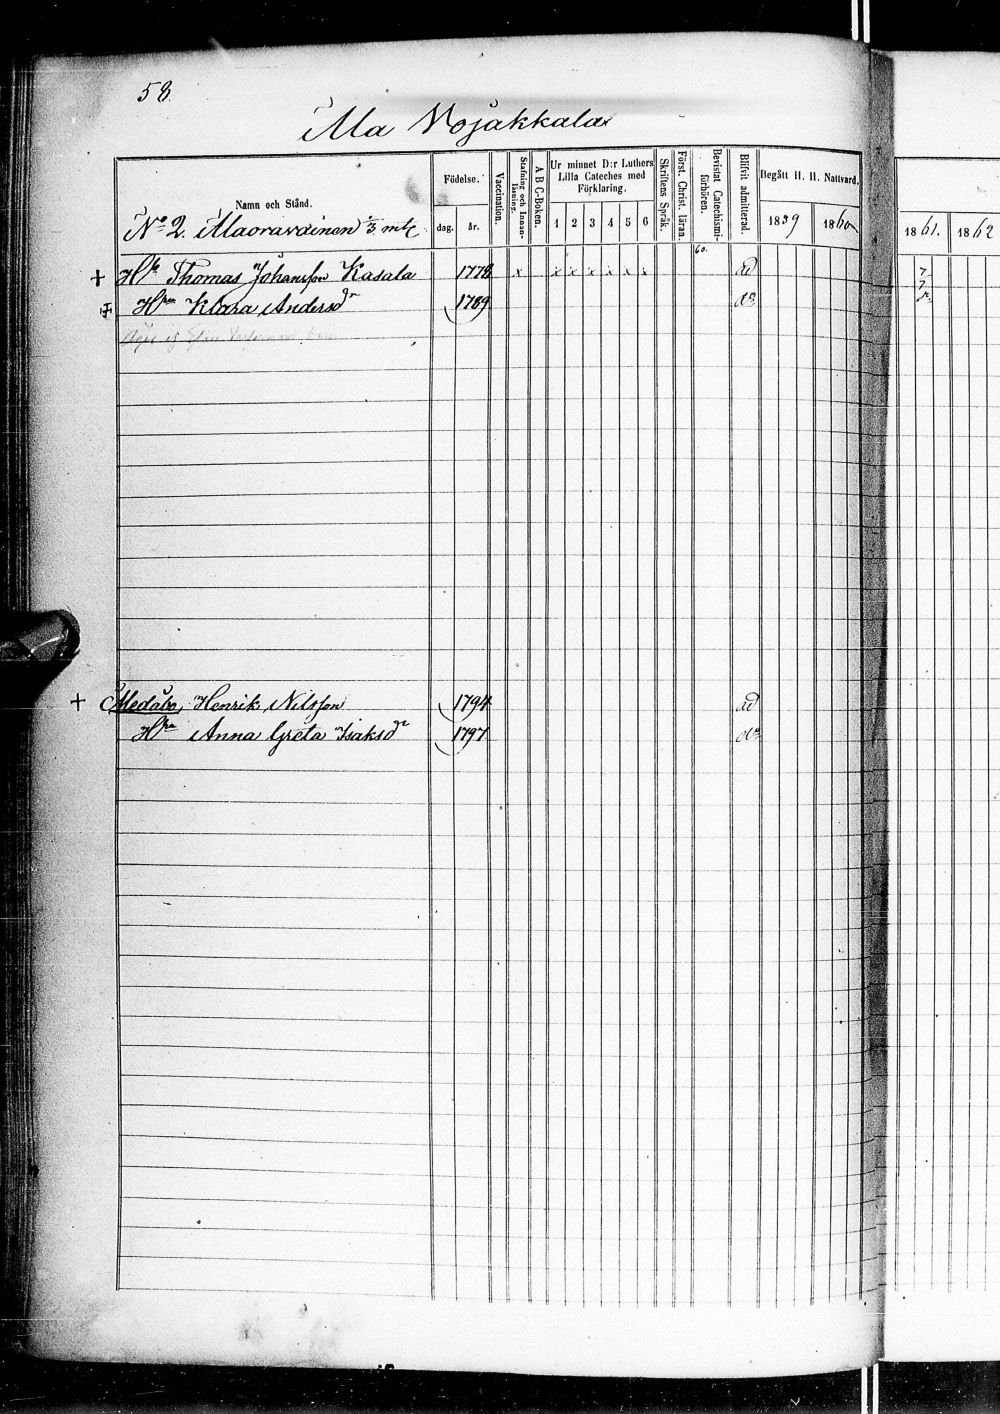 58.
Ala Nojakkala
Namn och Stånd.
Födelse.
dag. år.
Vaccination.
Stafning och Innan-läsning.
A B C-Boken.
Ur minnet D:r Luthers
Lilla Cateches med
Förklaring.
1 2 3 4 5 6
Skriftens Språk.
Först. Christ. läran.
Bevistat Catechismi-förhören.
Blifvit admitterad.
Begått H. H. Nattvard.
1859 1860
1861. 1862
No 2. Maaravainen 1/3 mtl
60.
+ Hbr Thomas Johansson Kasala 1778 x x x x x x x ad 7
Hn Klara Andersdr 1789 do
+ Medåbo, Henrik Nilsson 1794 ad
Hn Anna Greta Isaksdr 1797 do